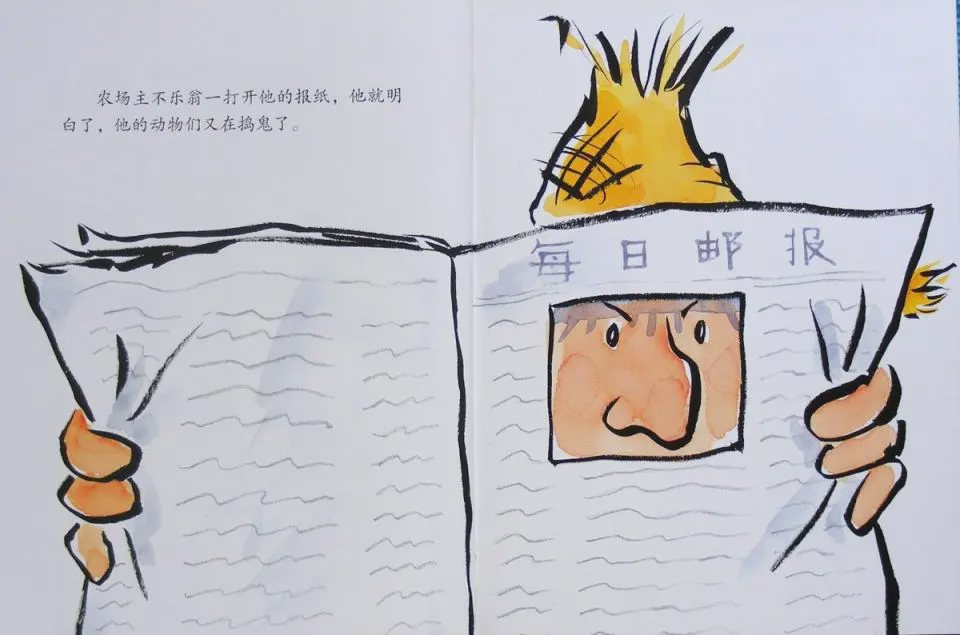 农场主不乐翁一打开他的报纸，他就明
白了，他的动物们又在捣鬼了。
每日邮报